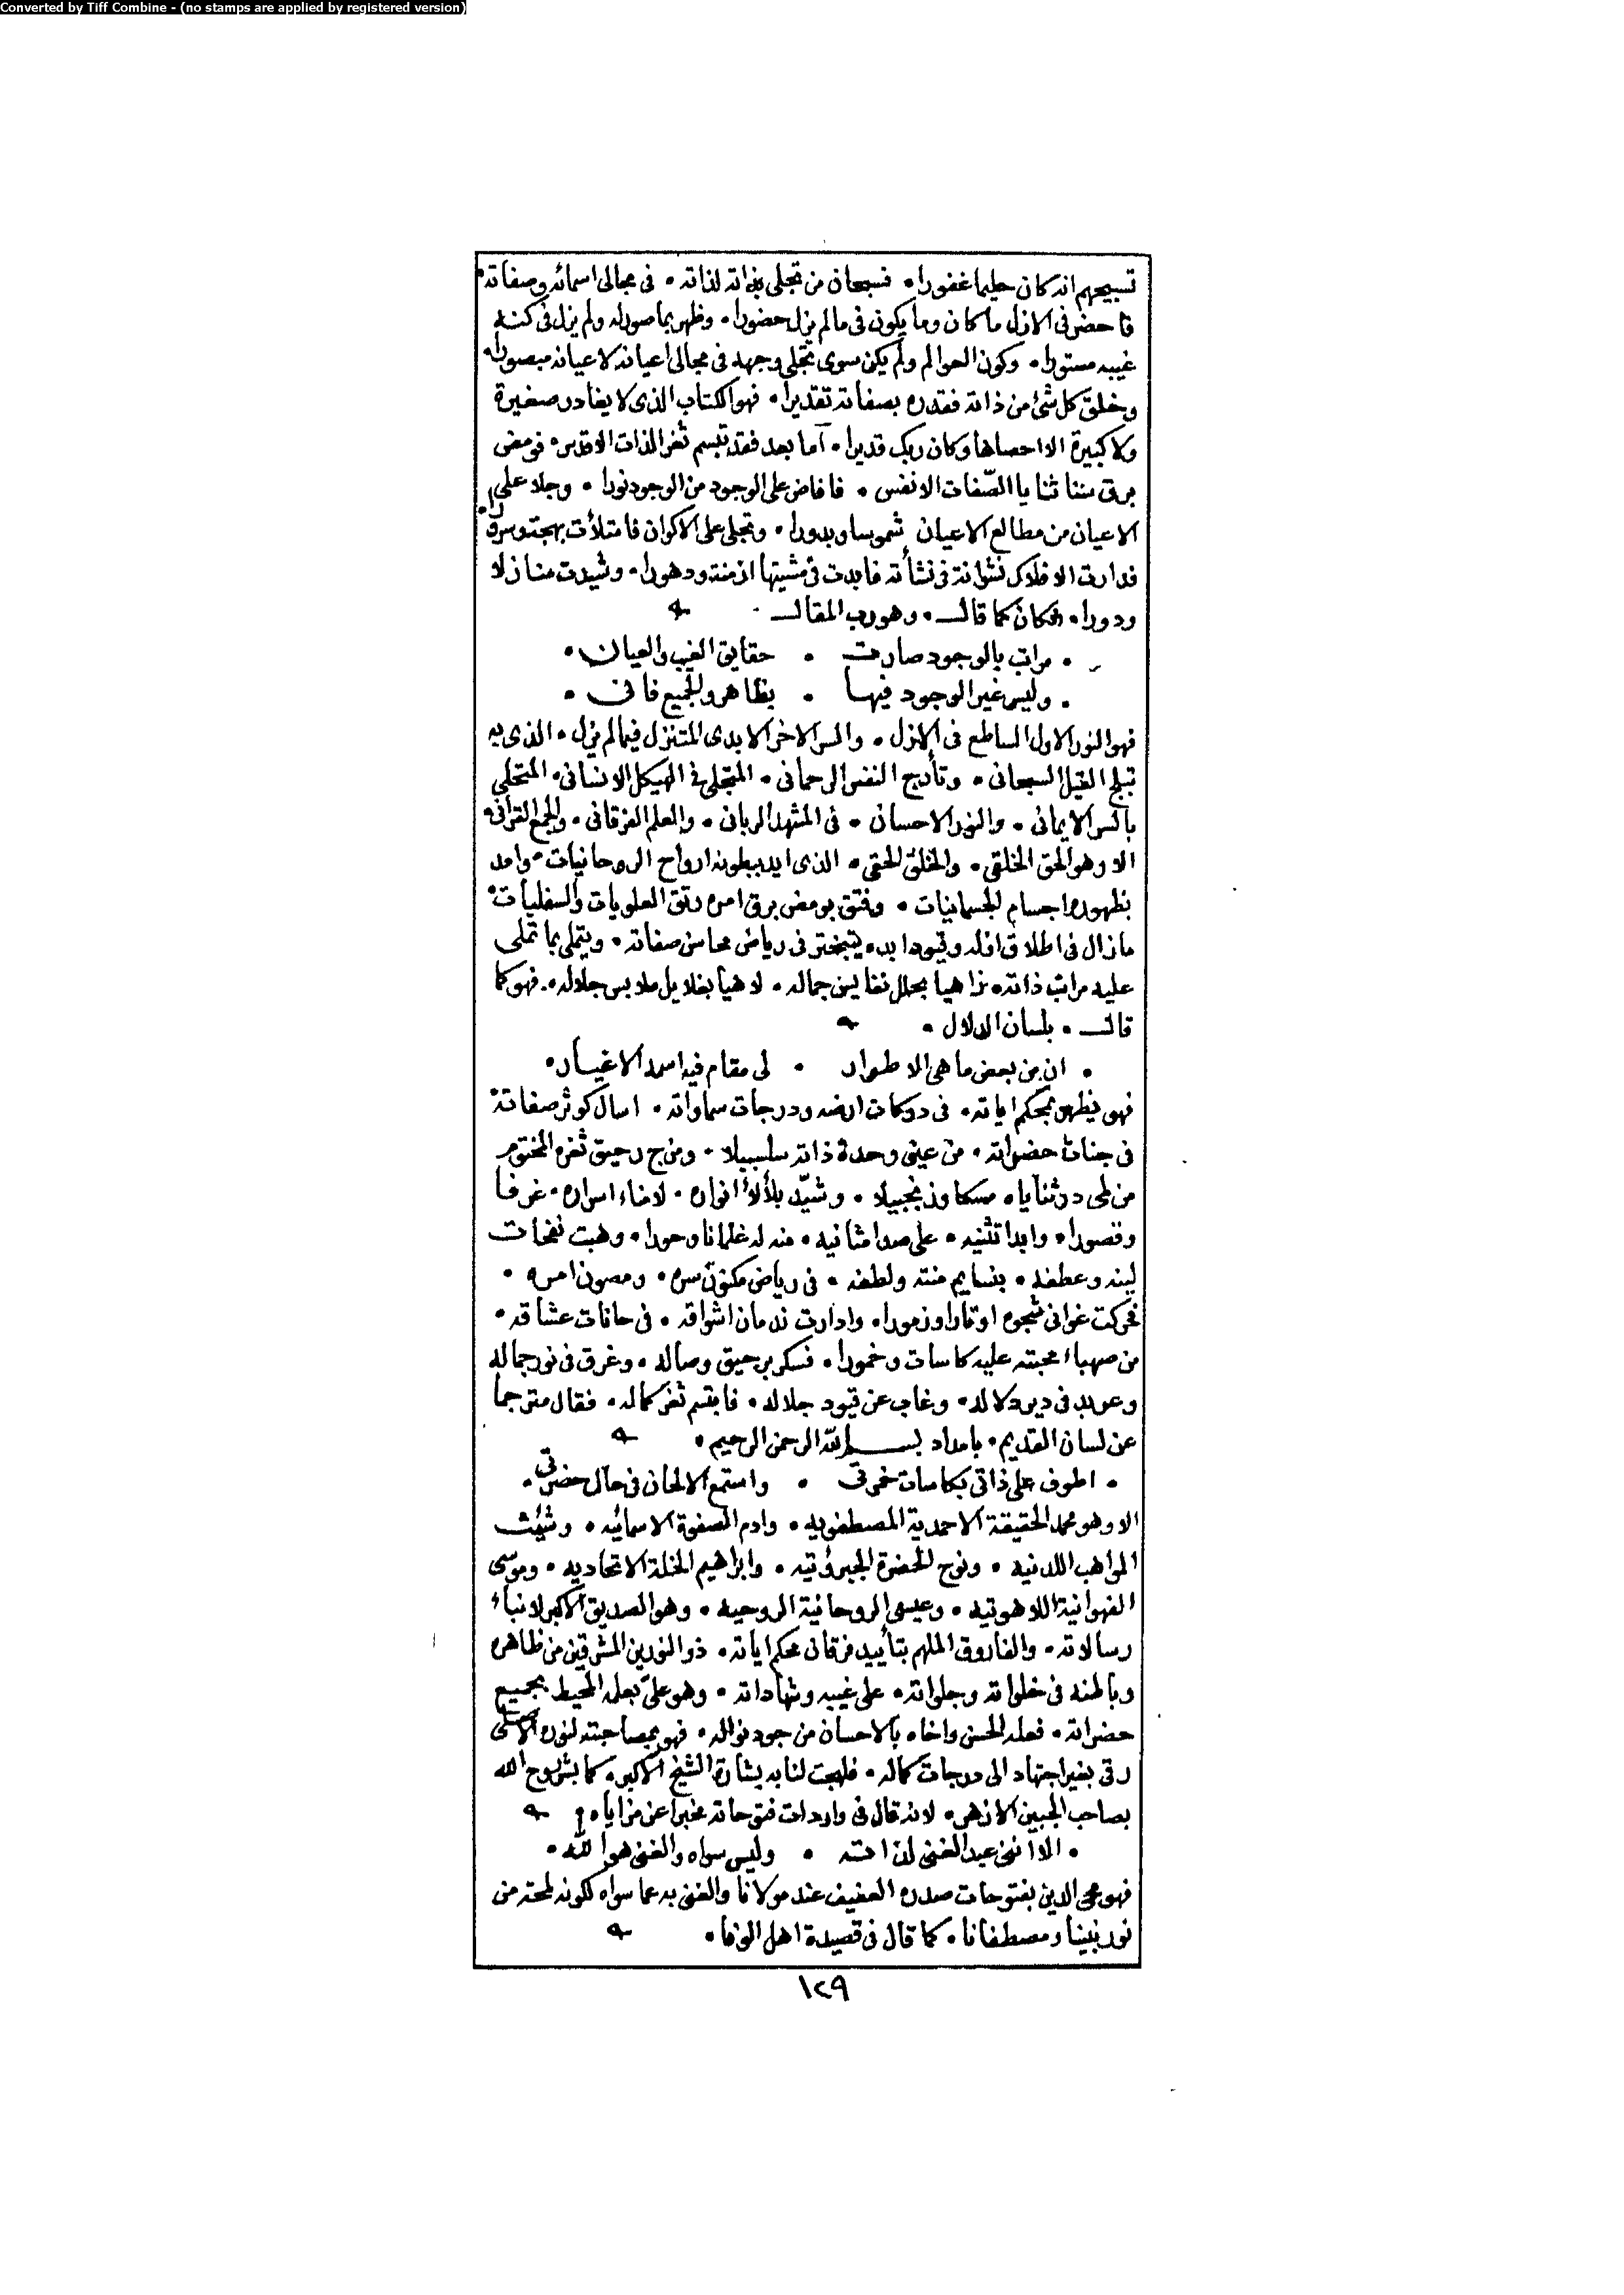 Converted by Tiff Combine - (no stamps are applied by registered version)
تسبيحهم انه كان حليما غفورا • فسبحان من تجلى بذاته لذاته • فى مجالى اسمائه وصفاته •
فاحضر فى الازل ما كان وما يكون فى ما لم يزل حضورا • وظهر بما صوره ولم يزل فى كنه
غيبه مستورا • وكون العوالم ولم يكن سوى تجلى وجهه فى مجالى اعيانه لاعيانه مبصورا •
وخلق كل شئ من ذاته فقدره بصفاته تقديرا • فهو الكتاب الذى لا يغادر صغيرة
ولا كبيرة الا احصاها وكان ربك قديرا • اما بعد فقد تبسم ثغر الذات الاقدس • فومض
برق سنا ثنايا الصّفات الانفس • فافاض على الوجود من الوجود نورا • وجلا على
الاعيان من مطالع الاعيان شموسا وبدورا • وتجلى على الاكوان فامتلأت بهجة وسرورا •
فدارت الافلاك نشوانة فى نشأته فابدت فى مشيتها ازمنة ودهورا • وشيدت منازلا
ودورا • فكان كما قال • وهو رب المقال
• مراتب بالوجود صارت • حقايق الغيب والعيان •
• وليس غير الوجود فيها • بظاهر والجميع فانى •
فهو النور الاول الساطع فى الازل • والسر الاخر الابدى المتنزل فيما لم يزل • الذى به
تبلج الليل السبحانى • وتأرج النفس الرحمانى • المتجلى فى الهيكل الانسانى • المتحلى
بالسر الايمانى • والنور الاحسانى • فى المشهد الربانى • والعلم الفرقانى • والجمع القرآنى •
الا وهو الحق الخلقى • والخلق الحقى • الذى ايد ببطونه ارواح الروحانيات • وامد
بظهوره اجسام الجسمانيات • وفتق بومض برق امره رتق العلويات والسفليات •
ما زال فى اطلاق ازله وقيود ابده يتبختر فى رياض محاسن صفاته • ويتملى بما تملى
عليه مراتب ذاته • زاهيا بحلل نفايس جماله • لاهيا بغلايل ملابس جلاله • فهو كما
قال • بلسان الدلال •
• ان من بعض ما هى الاطوار • لى مقام فيه اسمه الاغيار •
فهو يظهر بمحكم اياته • فى دركات ارضه ودرجات سماواته • اسال كوثر صفاته
فى جنات حضراته • من عين وحدة ذاته سلسبيلا • ومزج رحيق ثغره المختوم
من لمى در ثناياه مسكا وزنجبيلا • وشيّد بلألأ انواره • لاضاء اسراره • غرفا
وقصورا • وابدا تثنيه • على صدا مثانيه • منه له غلمانا وحورا • وهبت نفحات
لينه وعطفه • بنسايم منته ولطفه • فى رياض مكنون سره • ومصون امره •
فحركت غوانى شجوه اوتارا وزمورا • وادارت ندمان اشواقه • فى حانات عشاقه •
من صهباء محبته عليه كاسات وخمورا • فسكر برحيق وصاله • وغرق فى نور جماله
وعربد فى دير دلاله • وغاب عن قيود جلاله • فابتسم ثغر كماله • فقال مترجما
عن لسان القديم • بامداد بسم الله الرحمن الرحيم •
• اطوف على ذاتى بكاسات خمرتى • واستمع الالحان فى حال حضرتى •
الا وهو محمد الحقيقة الاحمدية المصطفويه • وادم الصفوة الاسمائيه • وشيث
المواهب اللدنيه • ونوح الحضرة الجبروتيه • وابراهيم الخلة الاتحاديه • وموسى
الفهوانية اللاهوتيه • وعيسى الروحانية الروحيه • وهو الصديق الاكبر لانباء
رسالاته • والفاروق الملهم بتأييد فرقان محكم اياته • ذو النورين المشرقين من ظاهره
وباطنه فى خلواته وجلواته • على غيبه وشهاداته • وهو على بعلمه المحيط بجميع
حضراته • فعله الحسن واخاه بالاحسان من جود نواله • فهو بمصاحبته لنوره الاصلى
رقى بغير اجتهاد الى درجات كماله • فلهجت لنا به بشارة الشيخ الاكبر • كما بشر روح الله
بصاحب الجبين الازهر • لانه قال فى واردات فتوحاته مخبرا عن مزاياه •
• الا اننى عبد الغنى لذاته • وليس سواه والغنى هو الله •
فهو محى الدين بفتوحات صدره العفيف عند مولانا والغنى به عما سواه لكونه لمحة من
نور نبينا ومصطفانا • كما قال فى قصيدة اهل الوفا •
١٢٩